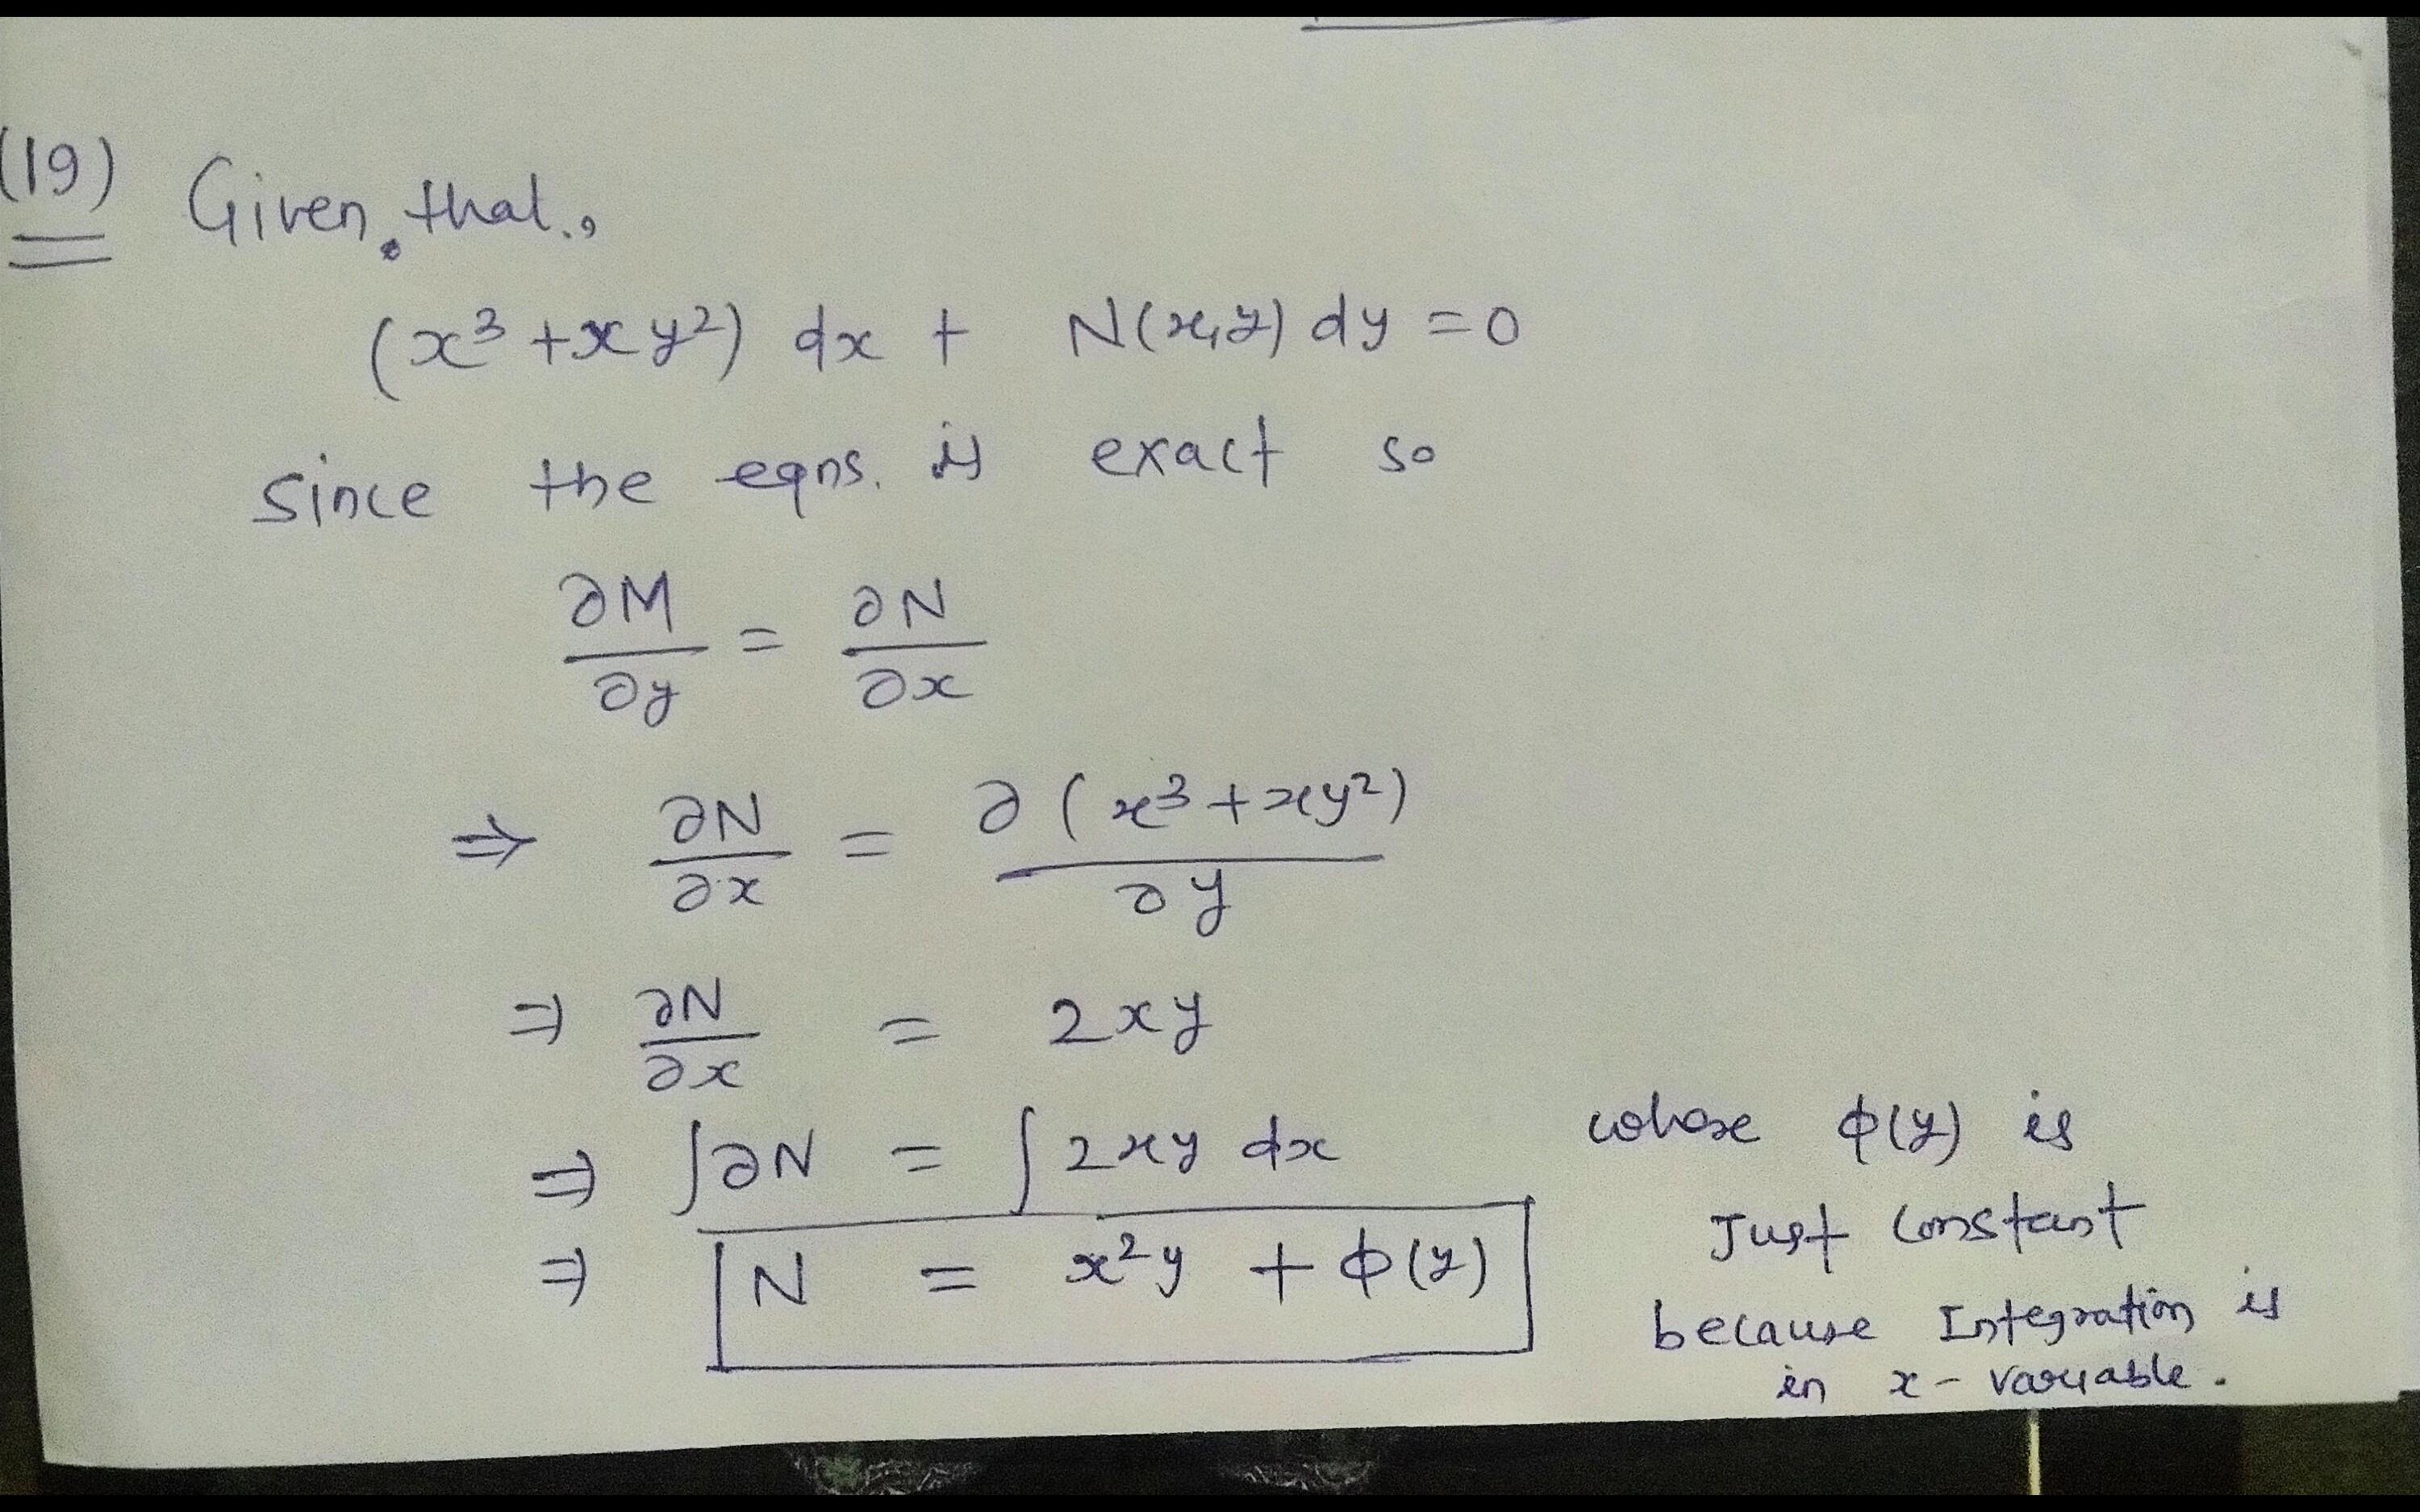 (19) Given that.,
(x³ + xy²) dx + N(x,y) dy = 0
since the eqns. is exact so
∂M/∂y = ∂N/∂x
⇒ ∂N/∂x = ∂(x³+xy²)/∂y
⇒ ∂N/∂x = 2xy
⇒ ∫∂N = ∫2xy dx
⇒ N = x²y + ϕ(y)
whose ϕ(y) is
Just constant
because Integration is
in x - variable.